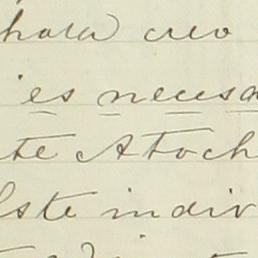 hora creo
es necesa
te Atoch
Este indiv